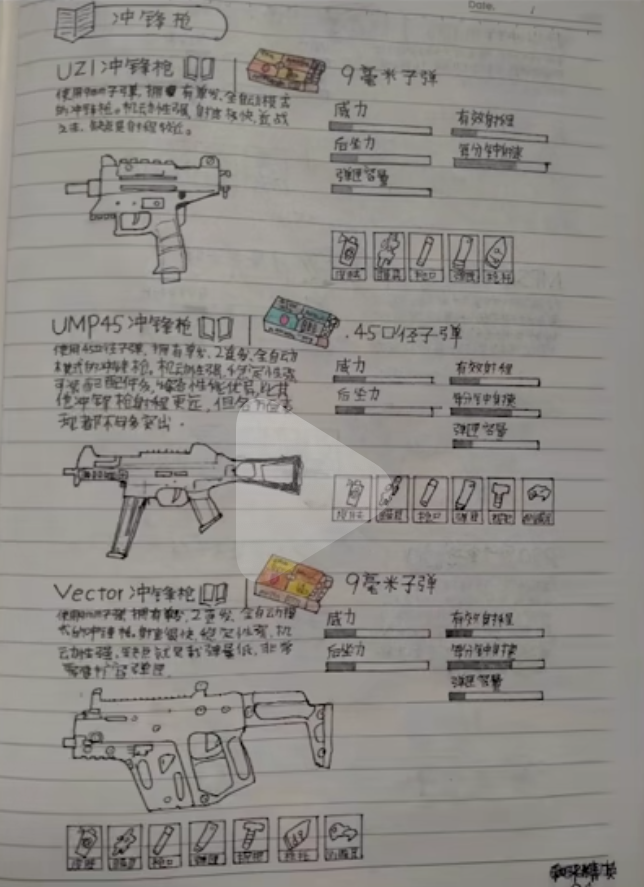 Date.
冲锋枪
UZI冲锋枪
9毫米子弹
使用9mm子弹,拥有单发,全自动模式
的冲锋枪。机动性强,射速极快,近战
之王,缺点是射程较近。
威力
有效射程
后坐力
每分钟射速
弹匣容量
枪口
弹匣
枪托
UMP45冲锋枪
.45口径子弹
使用.45口径子弹,拥有单发,2连发,全自动
模式的冲锋枪。机动性强,稳定性强
综合性能优易,比其
他冲锋枪射程更远,但各方面表
现都不够突出.
威力
有效射程
后坐力
每分钟射速
弹匣容量
枪口
弹匣
握把
Vector冲锋枪
9毫米子弹
使用9mm子弹,拥有单发,2连发,全自动模
式的冲锋枪。射速很快,稳定性强,机
动性强,缺点就是载弹量低,非常
需要扩容弹匣
威力
有效射程
后坐力
每分钟射速
弹匣容量
枪口
弹匣
握把
枪托